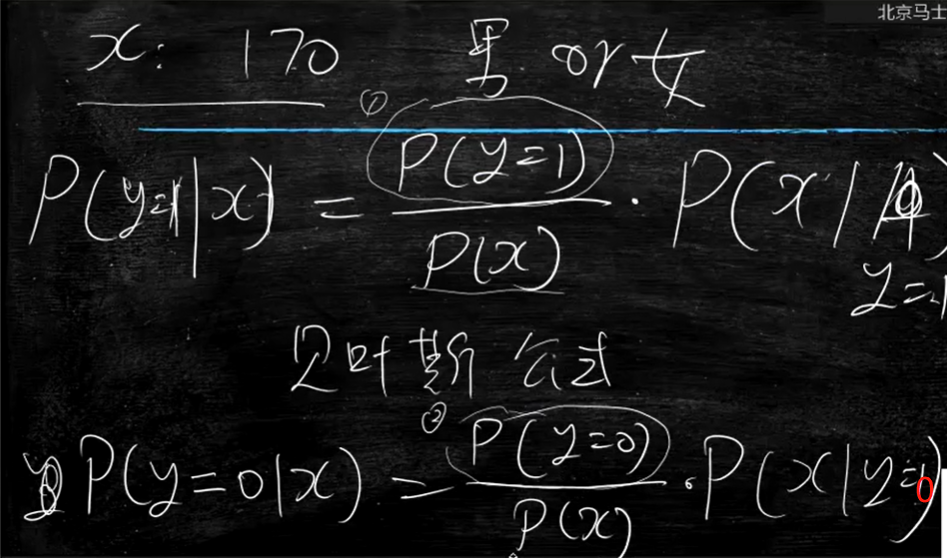 北京马士
x: 170 男 or 女
①
P(y=1|x) = P(y=1) / P(x) · P(x|
y=1
贝叶斯公式
②
P(y=0|x) = P(y=0) / P(x) · P(x|y=0)